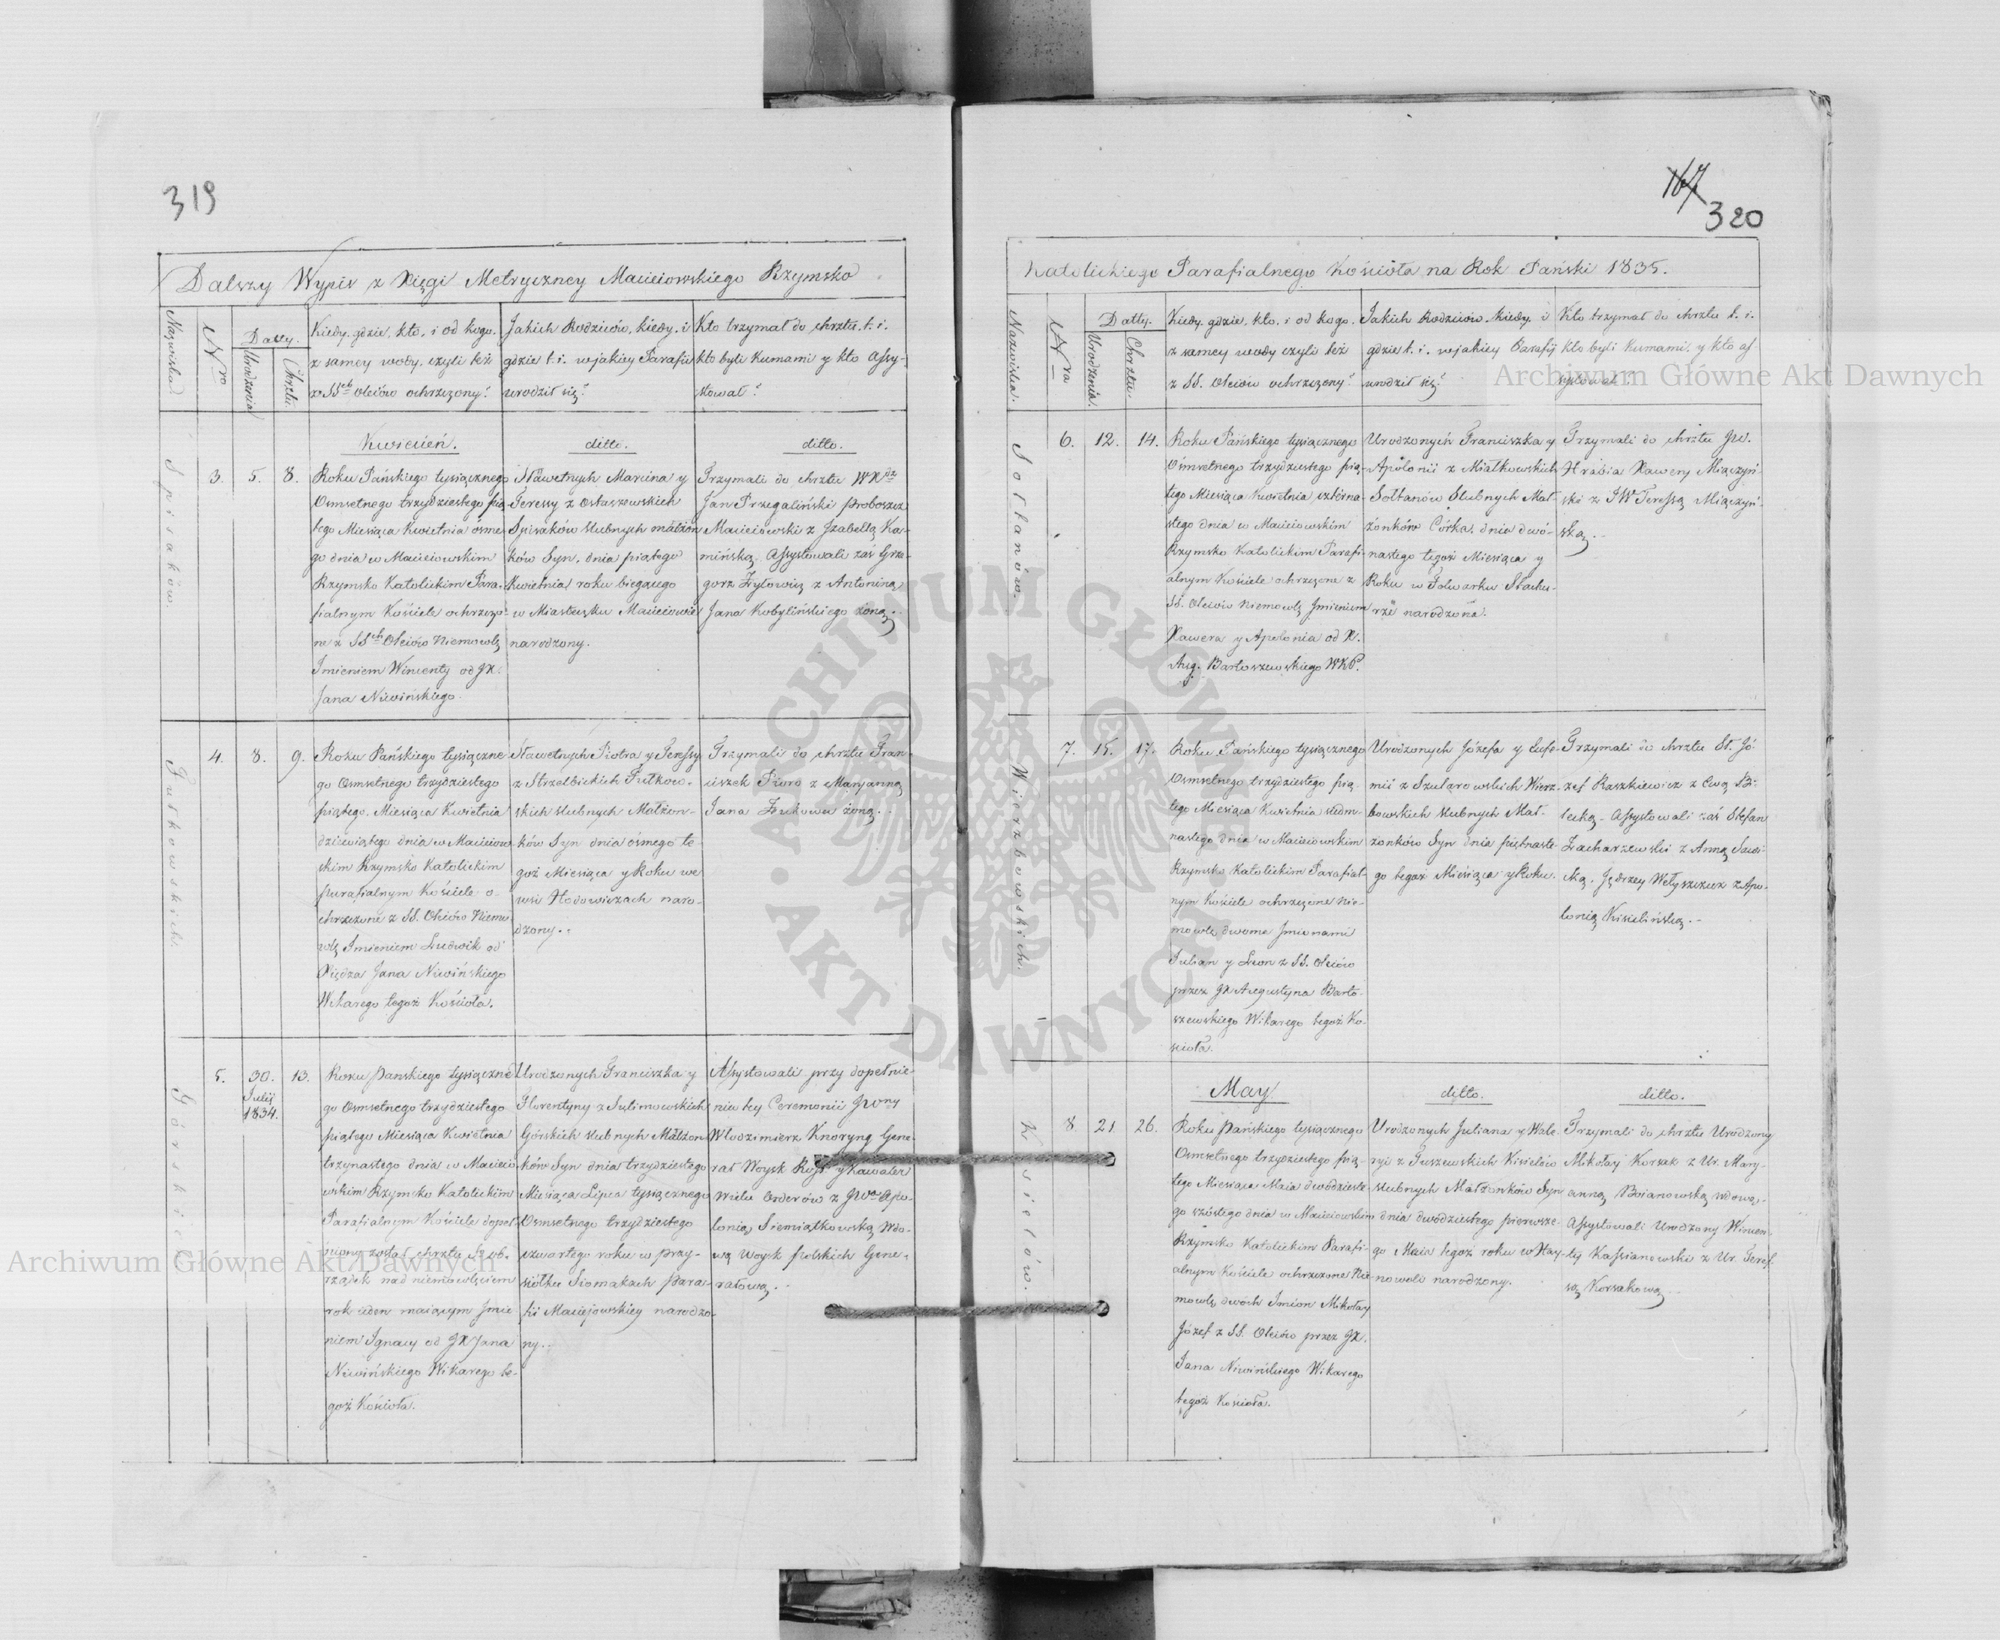 319
Dalszy Wypis z Xięgi Metryczney Macieiowskiego Rzymsko
Nazwiska
Nro
Datty.
Urodzenia
Chrztu
Kiedy, gdzie, kto, i od kogo.
z samey wody, czyli też
z SSch Oleiów ochrzczony?
Jakich Rodziców, kiedy, i
gdzie t. i. w jakiey Parafii
urodził się?
Kto trzymał do chrztu, t. i.
kto byli Kumami y kto Assy-
stował?
Kwiecień.
ditto.
ditto.
Spisaków
3.
5.
8.
Roku Pańskiego tysiącznego
Osmsetnego trzydziestego pią
tego Miesiąca Kwietnia ósme
go dnia w Maciiowskim
Rzymsko Katolickim Para-
fialnym Kościele ochrzczo-
ne z SSch Oleiów Niemowlę
Imieniem Wincenty od JX.
Jana Niwińskiego.
Sławetnych Marcina y
Teressy z Ostaszewskich
Spisaków slubnych małżon
ków Syn, dnia piątego
Kwietnia roku bieżącego
w Miasteczku Maciiowie
narodzony.
Trzymali do chrztu WX
Jan Przegaliński Proboszcz
Maciiowski z Izabellą Ka-
mińską, Assystowali zaś Grze
gorz Zyłowicz z Antoniną
Jana Kobylińskiego żoną.
Futkowskich
4.
8.
9.
Roku Pańskiego tysiączne-
go Osmsetnego trzydziestego
piątego, Miesiąca Kwietnia
dziewiątego dnia w Maciiow
skim Rzymsko Katolickim
parafialnym Kościele o-
chrzczone z SS. Oleiów Niemo
wlę Imieniem Ludwik od
Xiędza Jana Niwińskiego
Wikarego tegoż Kościoła.
Sławetnych Piotra y Teressy
z Strzelbickich Futkow-
skich slubnych Małżon-
ków Syn dnia ósmego te-
goż Miesiąca y Roku we
wsi Hodowiczach naro-
dzony.
Trzymali do chrztu Fran-
ciszek Pioro z Maryanną
Jana Żukowa żoną.
Górskich
5.
30.
Julij
1834.
13.
Roku Pańskiego tysiączne
go Osmsetnego trzydziestego
piątego Miesiąca Kwietnia
trzynastego dnia w Macieio
wskim Rzymsko Katolickim
Parafialnym Kościele dopeł
niony został chrztu S. ob-
rządek nad niemowlęciem
rok ieden maiącym Imie
niem Ignacy od JX Jana
Niwińskiego Wikarego te-
goż Kościoła.
Urodzonych Franciszka y
Florentyny z Sulimowskich
Górskich slubnych Małżon
ków Syn dnia trzydziestego
Miesiąca Lipca tysiącznego
Osmsetnego trzydziestego
czwartego roku w przy-
siółku Siomakach Para-
fii Maciejowskiey narodzo-
ny.
Assystowali przy dopełnie
niu tey Ceremonii JWny
Włodzimierz Knoryng Gene
rał Woysk Ross: y Kawaler
wielu Orderów z JWą Apo-
lonią Siemiątkowską wdo-
wą woysk polskich Gene-
rałową.
167
320
Katolickiego Parafialnego Kościoła na Rok Pański 1835.
Nazwiska.
Nra
Datty.
Urodzenia.
Chrztu.
Kiedy, gdzie, kto, i od kogo.
z samey wody czyli też
z SS. Oleiów ochrzczony?
Jakich Rodziców, kiedy i
gdzie t. i. w jakiey Parafij
urodził się?
Kto trzymał do chrztu t. i.
kto byli Kumami, y kto as
systował?
Sołtanów.
6.
12.
14.
Roku Pańskiego tysiącznego
Osmsetnego trzydziestego pią-
tego Miesiąca Kwietnia czterna-
stego dnia w Maciiowskim
Rzymsko Katolickim Parafi-
alnym Kościele ochrzczone z
SS. Oleiów Niemowlę Imieniem
Xawera y Apolonia od X.
Aug. Bartoszewskiego WKP.
Urodzonych Franciszka y
Apolonii z Miałkowskich
Sołtanów Slubnych Mał
żonków Córka, dnia dwó-
nastego tegoż Miesiąca y
Roku w Folwarku Stachu-
rze narodzona.
Trzymali do chrztu JW.
Hrabia Xawery Miączyń
ski z JW Teressą Miączyń-
ską.
Wierzbowskich.
7.
15.
17.
Roku Pańskiego tysiącznego
Osmsetnego trzydziestego pią-
tego Miesiąca Kwietnia siedm-
nastego dnia w Maciiowskim
Rzymsko Katolickim Parafial-
nym Kościele ochrzczone Nie-
mowlę dwoma Imionami
Julian y Leon z SS. Oleiów
przez JX Augustyna Barto-
szewskiego Wikarego tegoż Ko-
scioła.
Urodzonych Józefa y Eufe-
mii z Szularowskich Wierz
bowskich slubnych Mał-
żonków Syn dnia piętnaste-
go tegoż Miesiąca y Roku.
Trzymali do chrztu St. Jó-
zef Raszkiewicz z Ewą Bi-
lecką. Assystowali zaś Stefan
Zacharzewski z Anną
Jędrzey Wełyszczuk z Apo-
lonią Kisielińską.
May
ditto.
ditto.
Kisielów.
8
21
26.
Roku Pańskiego tysiącznego
Osmsetnego trzydziestego pią-
tego Miesiąca Maia dwódzieste-
go szóstego dnia w Maciiowskim
Rzymsko Katolickim Parafi-
alnym Kościele ochrzczone Nie
mowlę dwóch Imion Mikołay
Józef z SS. Oleiów przez JX.
Jana Niwińskiego Wikarego
tegoż Kościoła.
Urodzonych Juliana y Wale-
ryi z Tuszewskich Kisielów
slubnych Małżonków Syn
dnia dwódziestego pierwsze-
go Maia tegoż roku w Hay-
nowoli narodzony.
Trzymali do chrztu Urodzony
Mikołay Korsak z Ur. Mary-
anną Boianowską wdową.
Assystowali Urodzony Wincen-
ty Kassianowski z Ur. Teres-
są Korsakową.
Archiwum Główne Akt Dawnych
Archiwum Główne Akt Dawnych
ARCHIWUM GŁÓWNE
AKT DAWNYCH